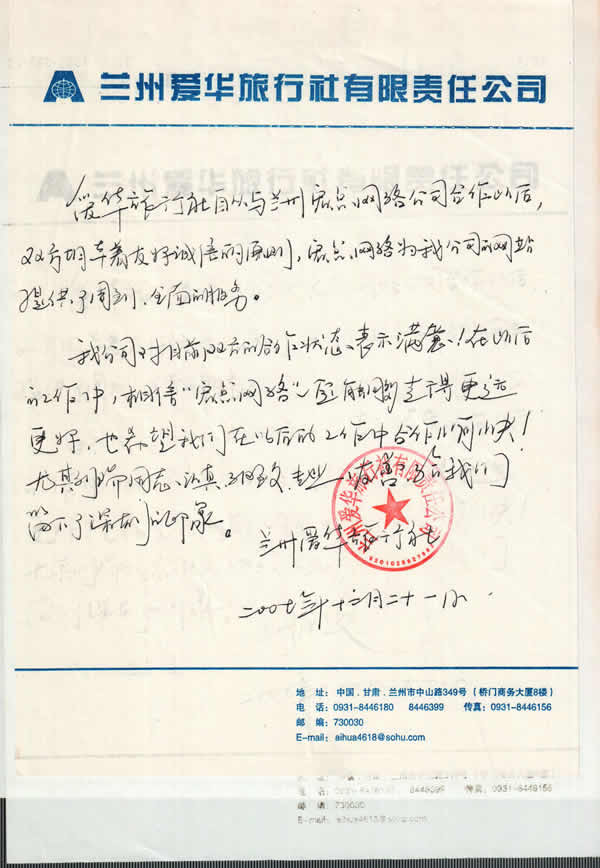 兰州爱华旅行社有限责任公司
爱华旅行社自从与兰州宏点网络公司合作以后，
双方相友好诚信的原则，宏点网络为我公司的网站
提供了周到、全面的服务。
我公司对目前双方的合作状态表示满意！在以后
的工作中，相信“宏点网络”一定能够走得更远
更好，也希望我们在以后的工作中合作愉快！
尤其同志认真、细致、专业给我们
留下了深刻的印象。
兰州爱华旅行社
二00七年十二月二十一日
兰州爱华旅行社有限责任公司
地 址：中国．甘肃．兰州市中山路349号（桥门商务大厦8楼）
电 话：0931-8446180 8446399 传真：0931-8446156
邮 编：730030
E-mail：aihua4618@sohu.com
8446399 传真：0931-8446156
邮 编：730030
E-mail：aihua4618@sohu.com